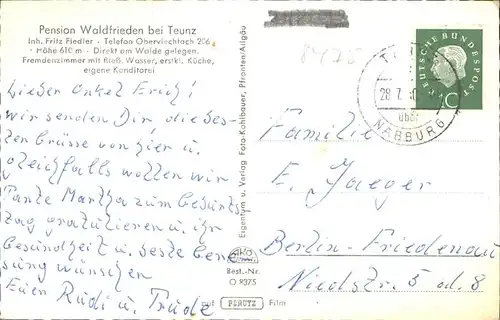 Pension Waldfrieden bei Teunz
Inh. Fritz Fiedler - Telefon Oberviechtach 206
- Höhe 610 m - Direkt am Walde gelegen.
Fremdenzimmer mit fließ. Wasser, erstkl. Küche,
eigene Konditorei
8478
DEUTSCHE BUNDESPOST
10
28.7.
über
NABBURG
Lieber Onkel Erich!
wir senden Dir die bes-
ten Grüsse von hier u.
gleichfalls wollen wir
Tante Martha zum Geburts
tag gratulieren u. ihr
Gesundheit u. beste Gene
sung wünschen
Euer Rudi u. Trude
Eigentum u. Verlag Foto-Kohlbauer, Pfronten/Allgäu
Best.-Nr.
O 9375
auf PERUTZ Film
Familie
E. Jaeger
Berlin-Friedenau
Niedstr. 5 od. 8